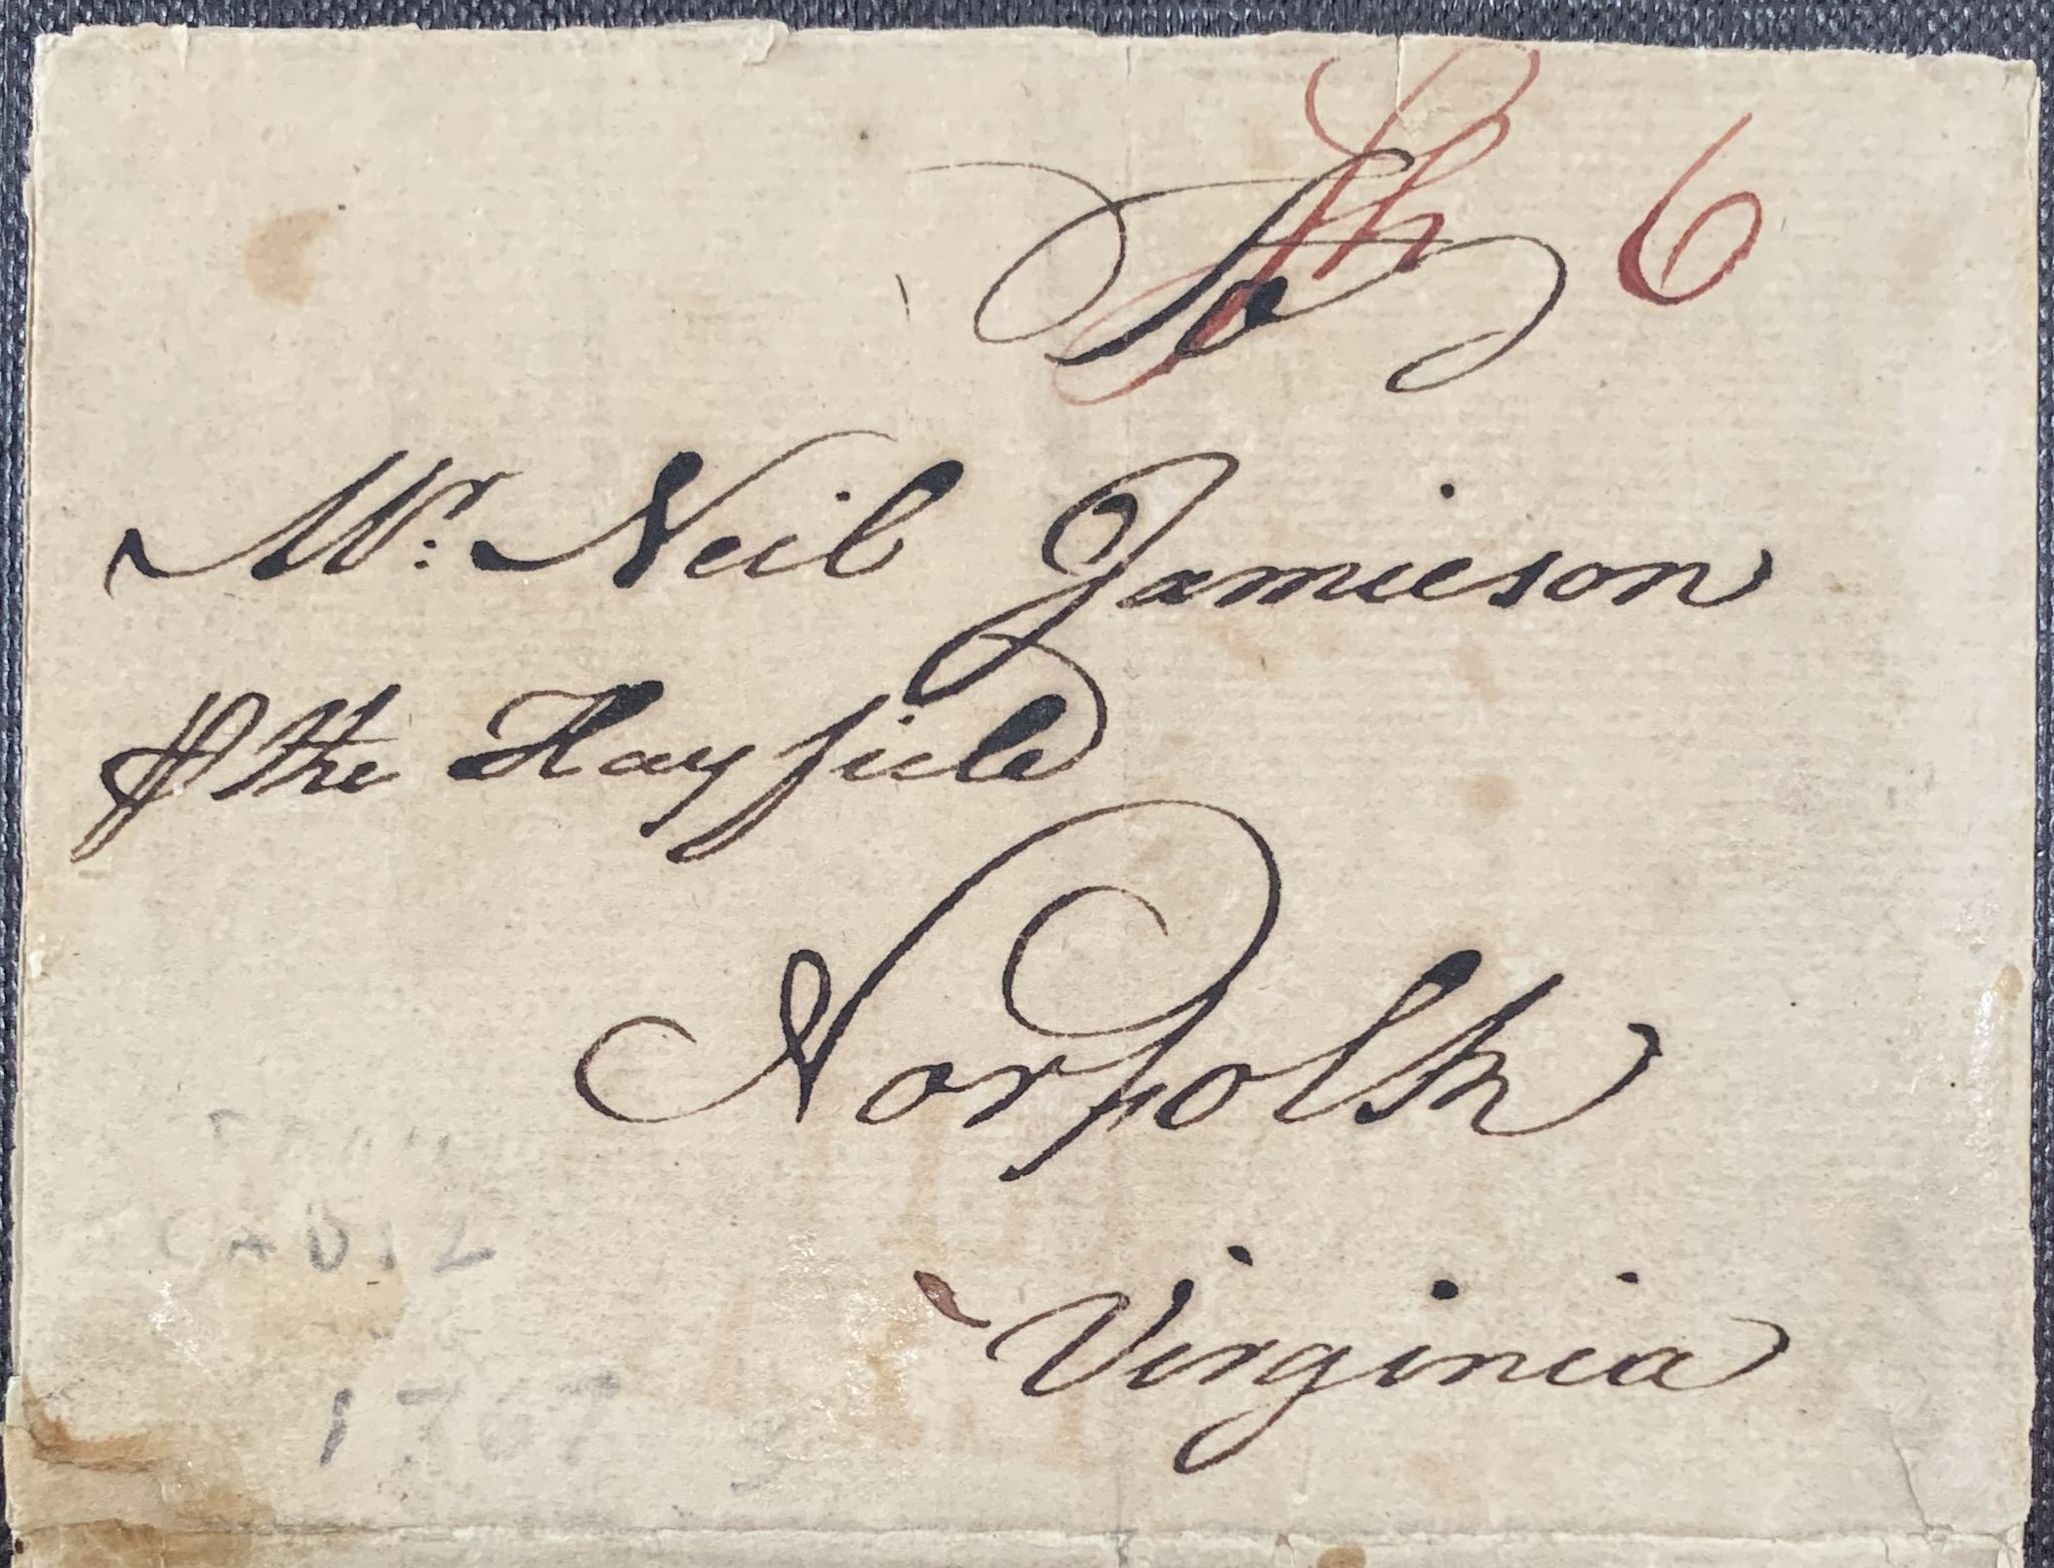 Sh 6
To
Mr. Neil Jamieson
⅌ the Hayfield
Norfolk
Virginia
CADIZ
1767